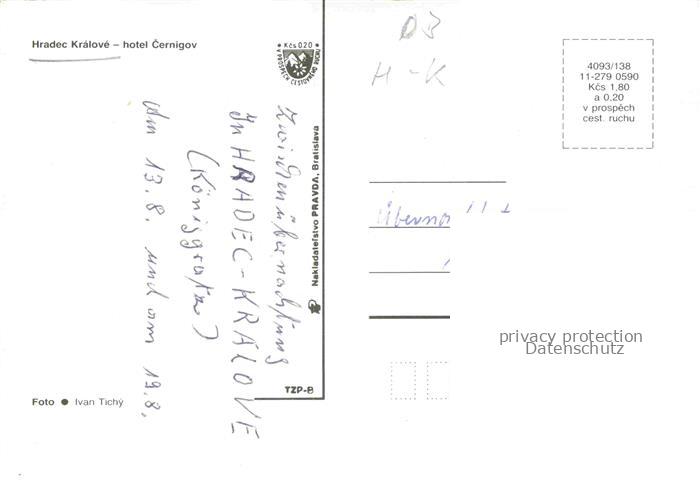 Hradec Králové – hotel Černigov
Kčs 0.20
PROSPĚCH CESTOVNÉHO RUCHU
Zwischenübernachtung
In HRADEC-KRÁLOVÉ
(Königgrätz)
Am 13.8. und am 19.8.
Nakladateľstvo PRAVDA, Bratislava
TZP-B
Foto ● Ivan Tichý
H-K
4093/138
11-279 0590
Kčs 1,80
a 0,20
v prospěch
cest. ruchu
privacy protection
Datenschutz